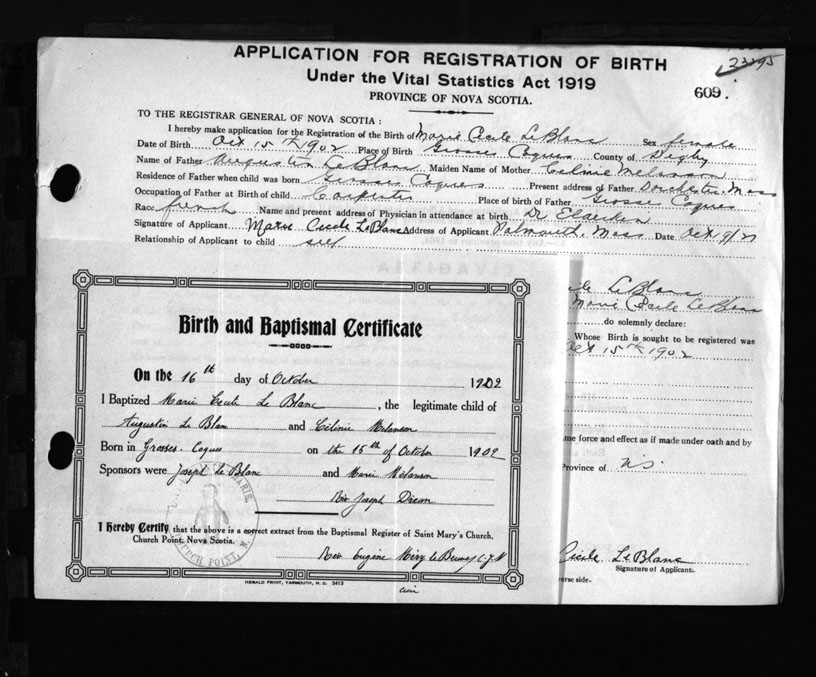 APPLICATION FOR REGISTRATION OF BIRTH
Under the Vital Statistics Act 1919
PROVINCE OF NOVA SCOTIA.
609.
TO THE REGISTRAR GENERAL OF NOVA SCOTIA :
I hereby make application for the Registration of the Birth of Marie Cecile LeBlanc Sex female
Date of Birth Oct 15th 1902 Place of Birth Grosses Coques County of Digby
Name of Father LeBlanc Maiden Name of Mother Melanson
Residence of Father when child was born Grosses Coques Present address of Father Dorchester, Mass
Occupation of Father at Birth of child Place of birth of Father Grosse Coques
Race french Name and present address of Physician in attendance at birth Dr
Signature of Applicant Marie Cecile LeBlanc Address of Applicant Mass. Date Oct
Relationship of Applicant to child self
Birth and Baptismal Certificate
On the 16th day of October 1902
I Baptized Marie Cecile Le Blanc, the legitimate child of
Augustin Le Blanc and Célinie Melanson
Born in Grosses Coques on the 15th of October 1902
Sponsors were Joseph Le Blanc and Marie Mélanson
Rev Joseph
I Hereby Certify that the above is a correct extract from the Baptismal Register of Saint Mary's Church,
Church Point, Nova Scotia.
Rev Eugène
MARIE
CHURCH POINT, N.
HERALD PRINT, YARMOUTH, N. S. 3413
LeBlanc
Marie Cecile LeBlanc
do solemnly declare:
Whose Birth is sought to be registered was
Oct 15th 1902
me force and effect as if made under oath and by
Province of N.S.
Cecile LeBlanc
Signature of Applicant.
verse side.